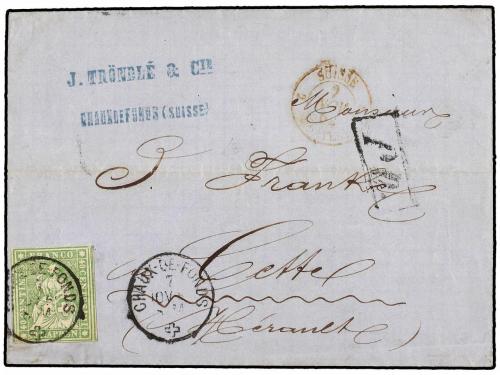 J. TRÖNDLÉ & CIE
CHAUXDEFONDS (SUISSE)
SUISSE
Monsieur
P.D.
J Frank
FRANCO
CHAUX-DE-FONDS
CHAUX-DE-FONDS
7
NOV
Cette
(Hérault)